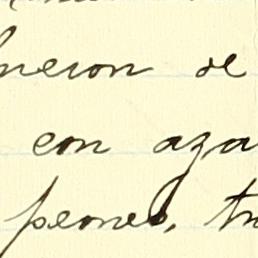 nieron de
con aza
peones, tr